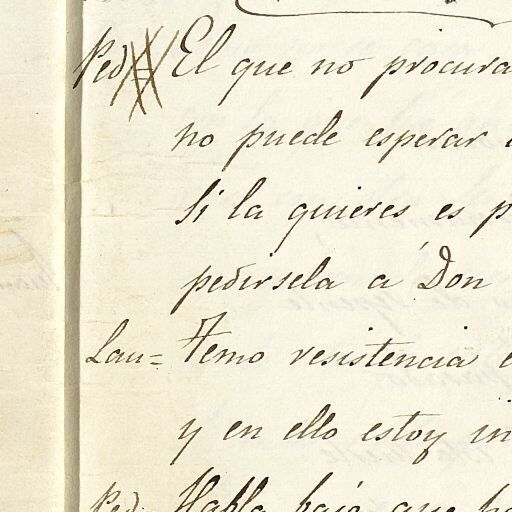 Ped El que no procura
no puede esperar
Si la quieres es p
pedirsela á Don
Lau= Temo resistencia
y en ello estoy in
Ped. Habla bajo que